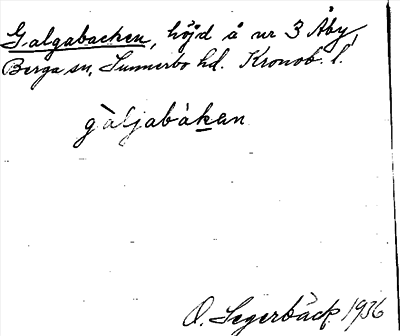 Galgabacken, höjd å nr 3 Åby,
Berga sn, Sunnerbo hd. Kronob. l.
gàljabàkan
O. Segerbäck 1936